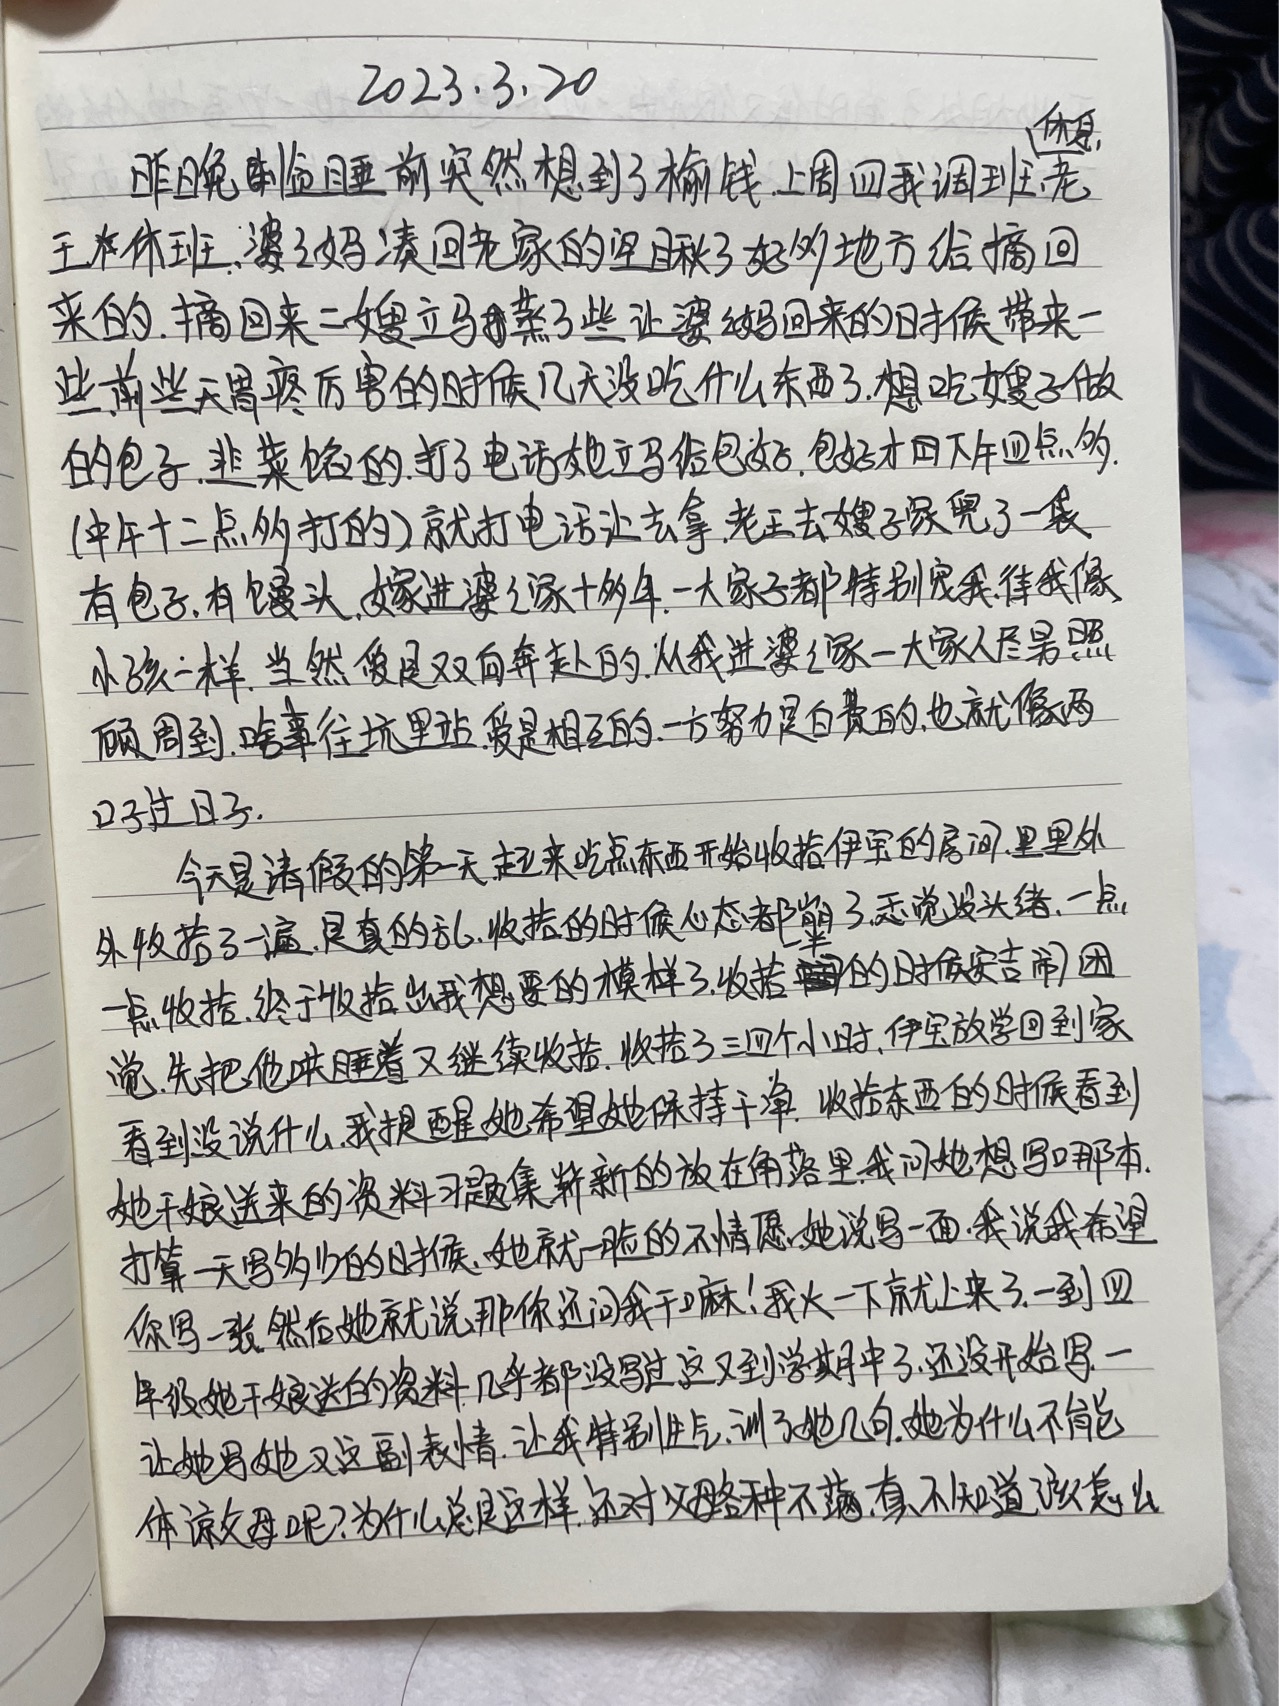 2023.3.20
休息,
昨晚临睡前突然想到了榆钱.上周四我调班.老
王在休班.婆婆妈凑回老家的空日瞅了好多地方给摘回
来的.摘回来二嫂立马蒸了些让婆婆妈回来的时候带来一
些.前些天胃疼厉害的时候几天没吃什么东西了.想吃嫂子做
的包子.韭菜馅的.打了电话她立马给包好.包好才四下午四点多.
(中午十二点多打的)就打电话让去拿.老王去嫂子家兜了一袋
有包子.有馒头.嫁进婆婆家十多年.一大家子都特别宠我.待我像
小孩一样.当然爱是双向奔赴的.从我进婆婆家一大家人尽是照
顾周到.啥事往坑里站.爱是相互的.一方努力是白费的.也就像两
口子过日子.
今天是请假的第一天.起来吃点东西开始收拾伊宝的房间.里里外
外收拾了一遍.是真的乱.收拾的时候心态都崩了.感觉没头绪.一点
一点收拾.终于收拾出我想要的模样了.收拾一半的时候安吉闹困
觉.先把他哄睡着又继续收拾.收拾了三四个小时.伊宝放学回到家
看到没说什么.我提醒她希望她保持干净.收拾东西的时候看到
她干娘送来的资料习题集崭新的放在角落里.我问她想写哪本.
打算一天写多少的时候.她就一脸的不情愿.她说写一面.我说我希望
你写一张.然后她就说.那你还问我干嘛!我火一下就上来了.一到四
年级她干娘送的资料几乎都没写过.这又到学期中了.还没开始写.一
让她写她又这副表情.让我特别生气.训了她几句.她为什么不能
体谅父母呢?为什么总是这样.还对父母各种不满.真不知道该怎么